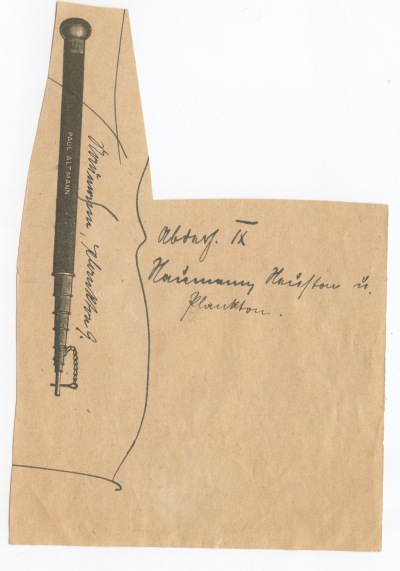 PAUL ALTMANN
Abderh. IX
Naumann, Neuston u.
Plankton.